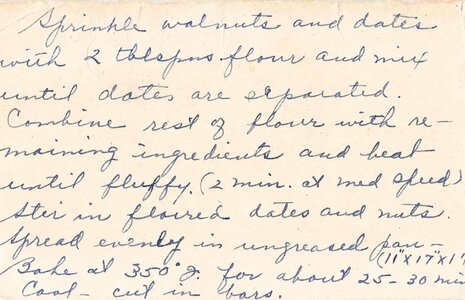 Sprinkle walnuts and dates
with 2 tblspns flour and mix
until dates are separated.
Combine rest of flour with re-
maining ingredients and beat
until fluffy. (2 min. at med speed)
Stir in floured dates and nuts.
Spread evenly in ungreased pan -
(11"x17"x1")
Bake at 350° F. for about 25-30 min
Cool - cut in bars.